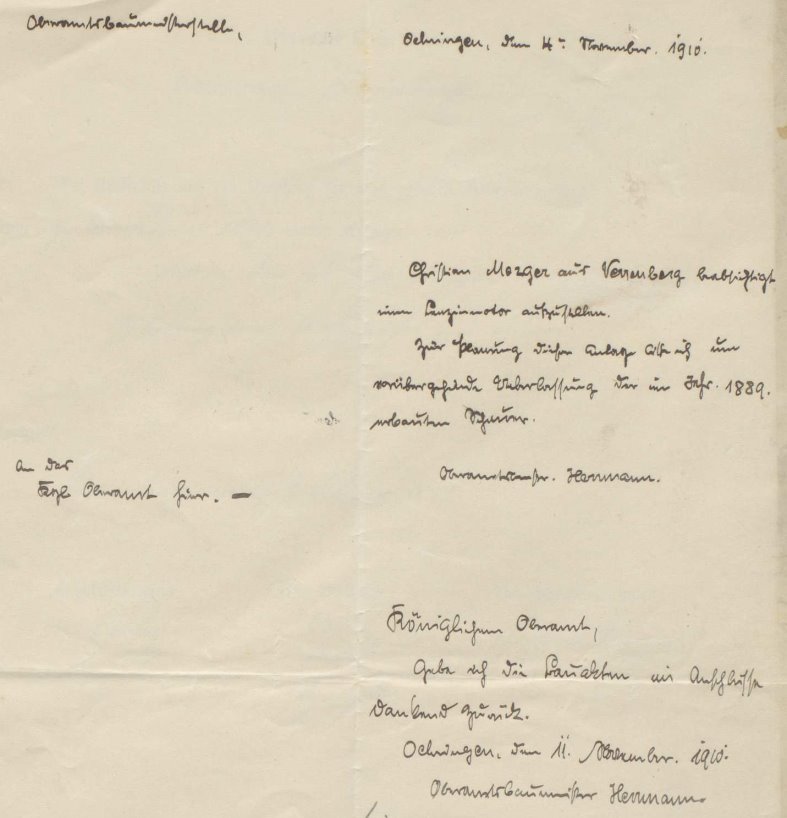 Oberamtsbaumeisterstelle,
Oehringen, den 4t. November. 1910.
Christian Metzger aus Verrenberg beabsichtigt
einen Benzinmotor aufzustellen.
Zur Planung dieser Anlage bitte ich um
vorübergehende Ueberlassung der im Jahr. 1889.
erbauten Scheuer.
Oberamtsbmstr. Herrmann.
An das
Kgl. Oberamt hier. —
Königlichem Oberamt,
Gebe ich die Bauakten im Anschlusse
dankend zurück.
Oehringen, den 11. November. 1910.
Oberamtsbaumeister Herrmann.